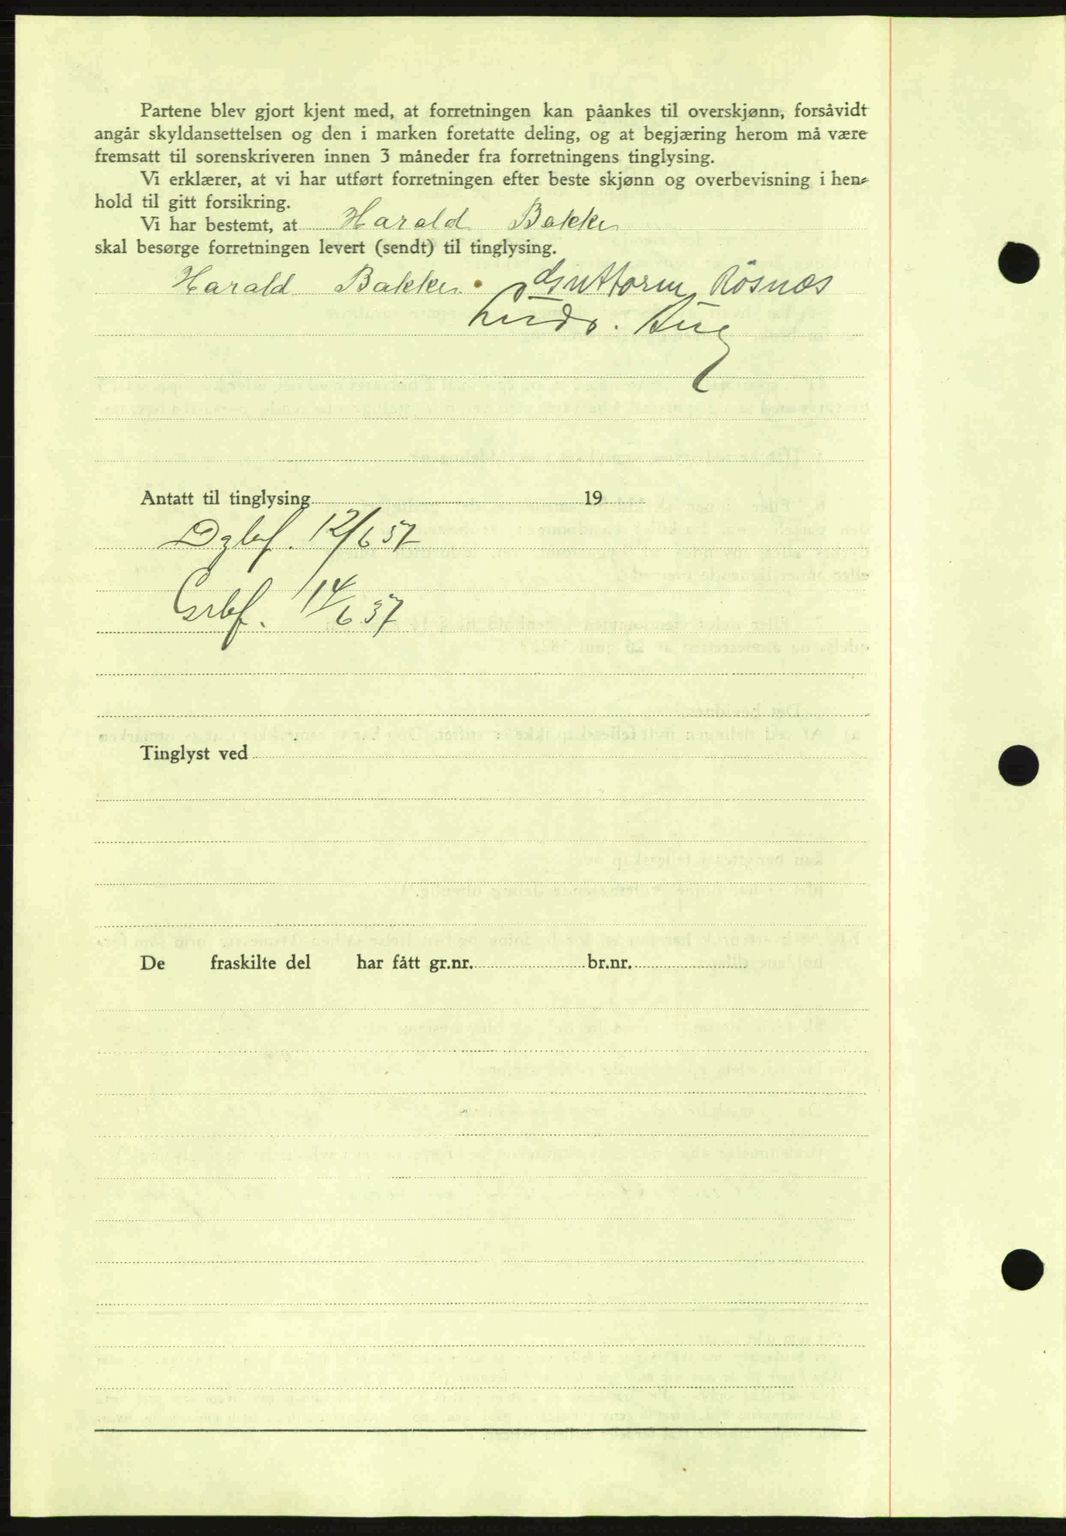 Partene blev gjort kjent med, at forretningen kan påankes til overskjønn, forsåvidt
angår skyldansettelsen og den i marken foretatte deling, og at begjæring herom må være
fremsatt til sorenskriveren innen 3 måneder fra forretningens tinglysing.
Vi erklærer, at vi har utført forretningen efter beste skjønn og overbevisning i hen-
hold til gitt forsikring.
Vi har bestemt, at Harald Bakke
skal besørge forretningen levert (sendt) til tinglysing.
Harald Bakke. Guttorm Røsnæs
Ludv.
Antatt til tinglysing 19
Dgbf. 12/6 37
Grbf. 14/6 37
Tinglyst ved
De fraskilte del har fått gr.nr. br.nr.